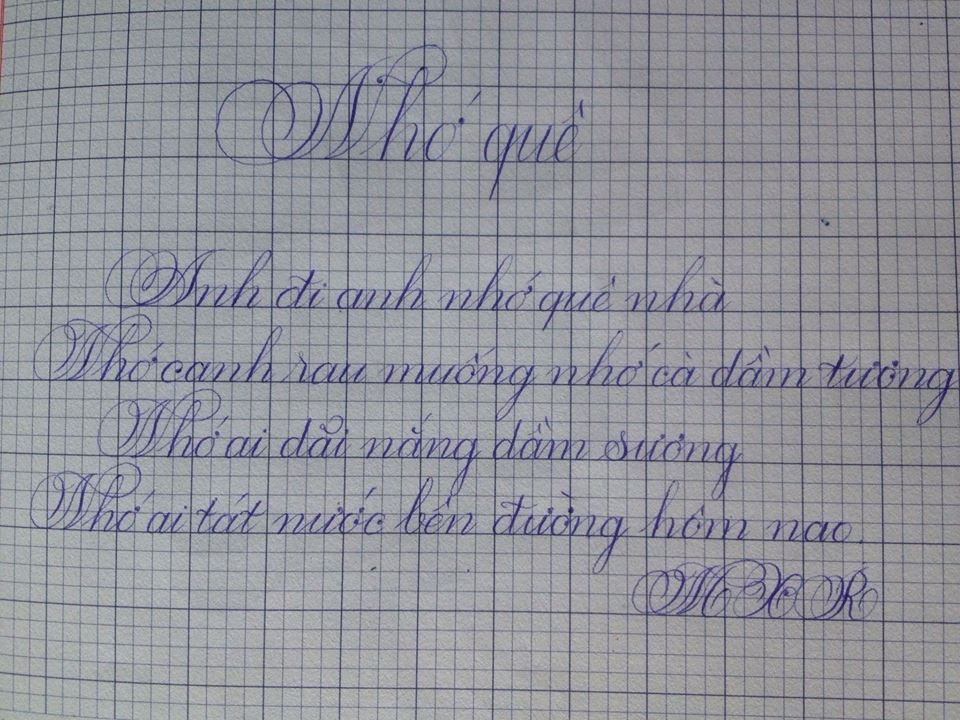 Nhớ quê
Anh đi anh nhớ quê nhà
Nhớ canh rau muống nhớ cà dầm tương
Nhớ ai dãi nắng dầm sương
Nhớ ai tát nước bên đường hôm nao.